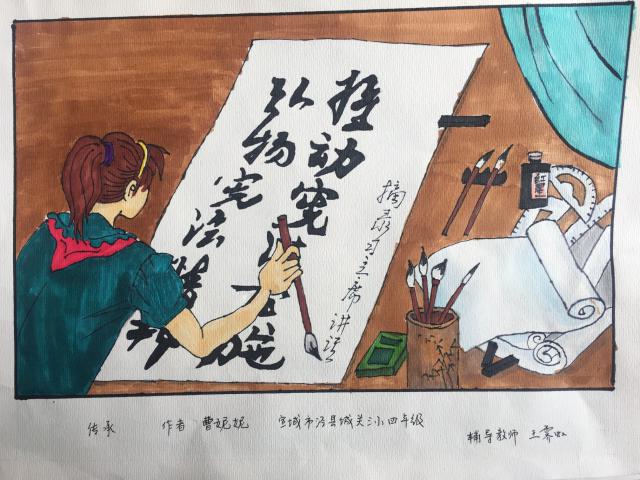 推动宪法实施
弘扬宪法精神
摘录习主席讲话
传承 作者 曹妮妮 宣城市泾县城关三小四年级
辅导教师 王霁虹